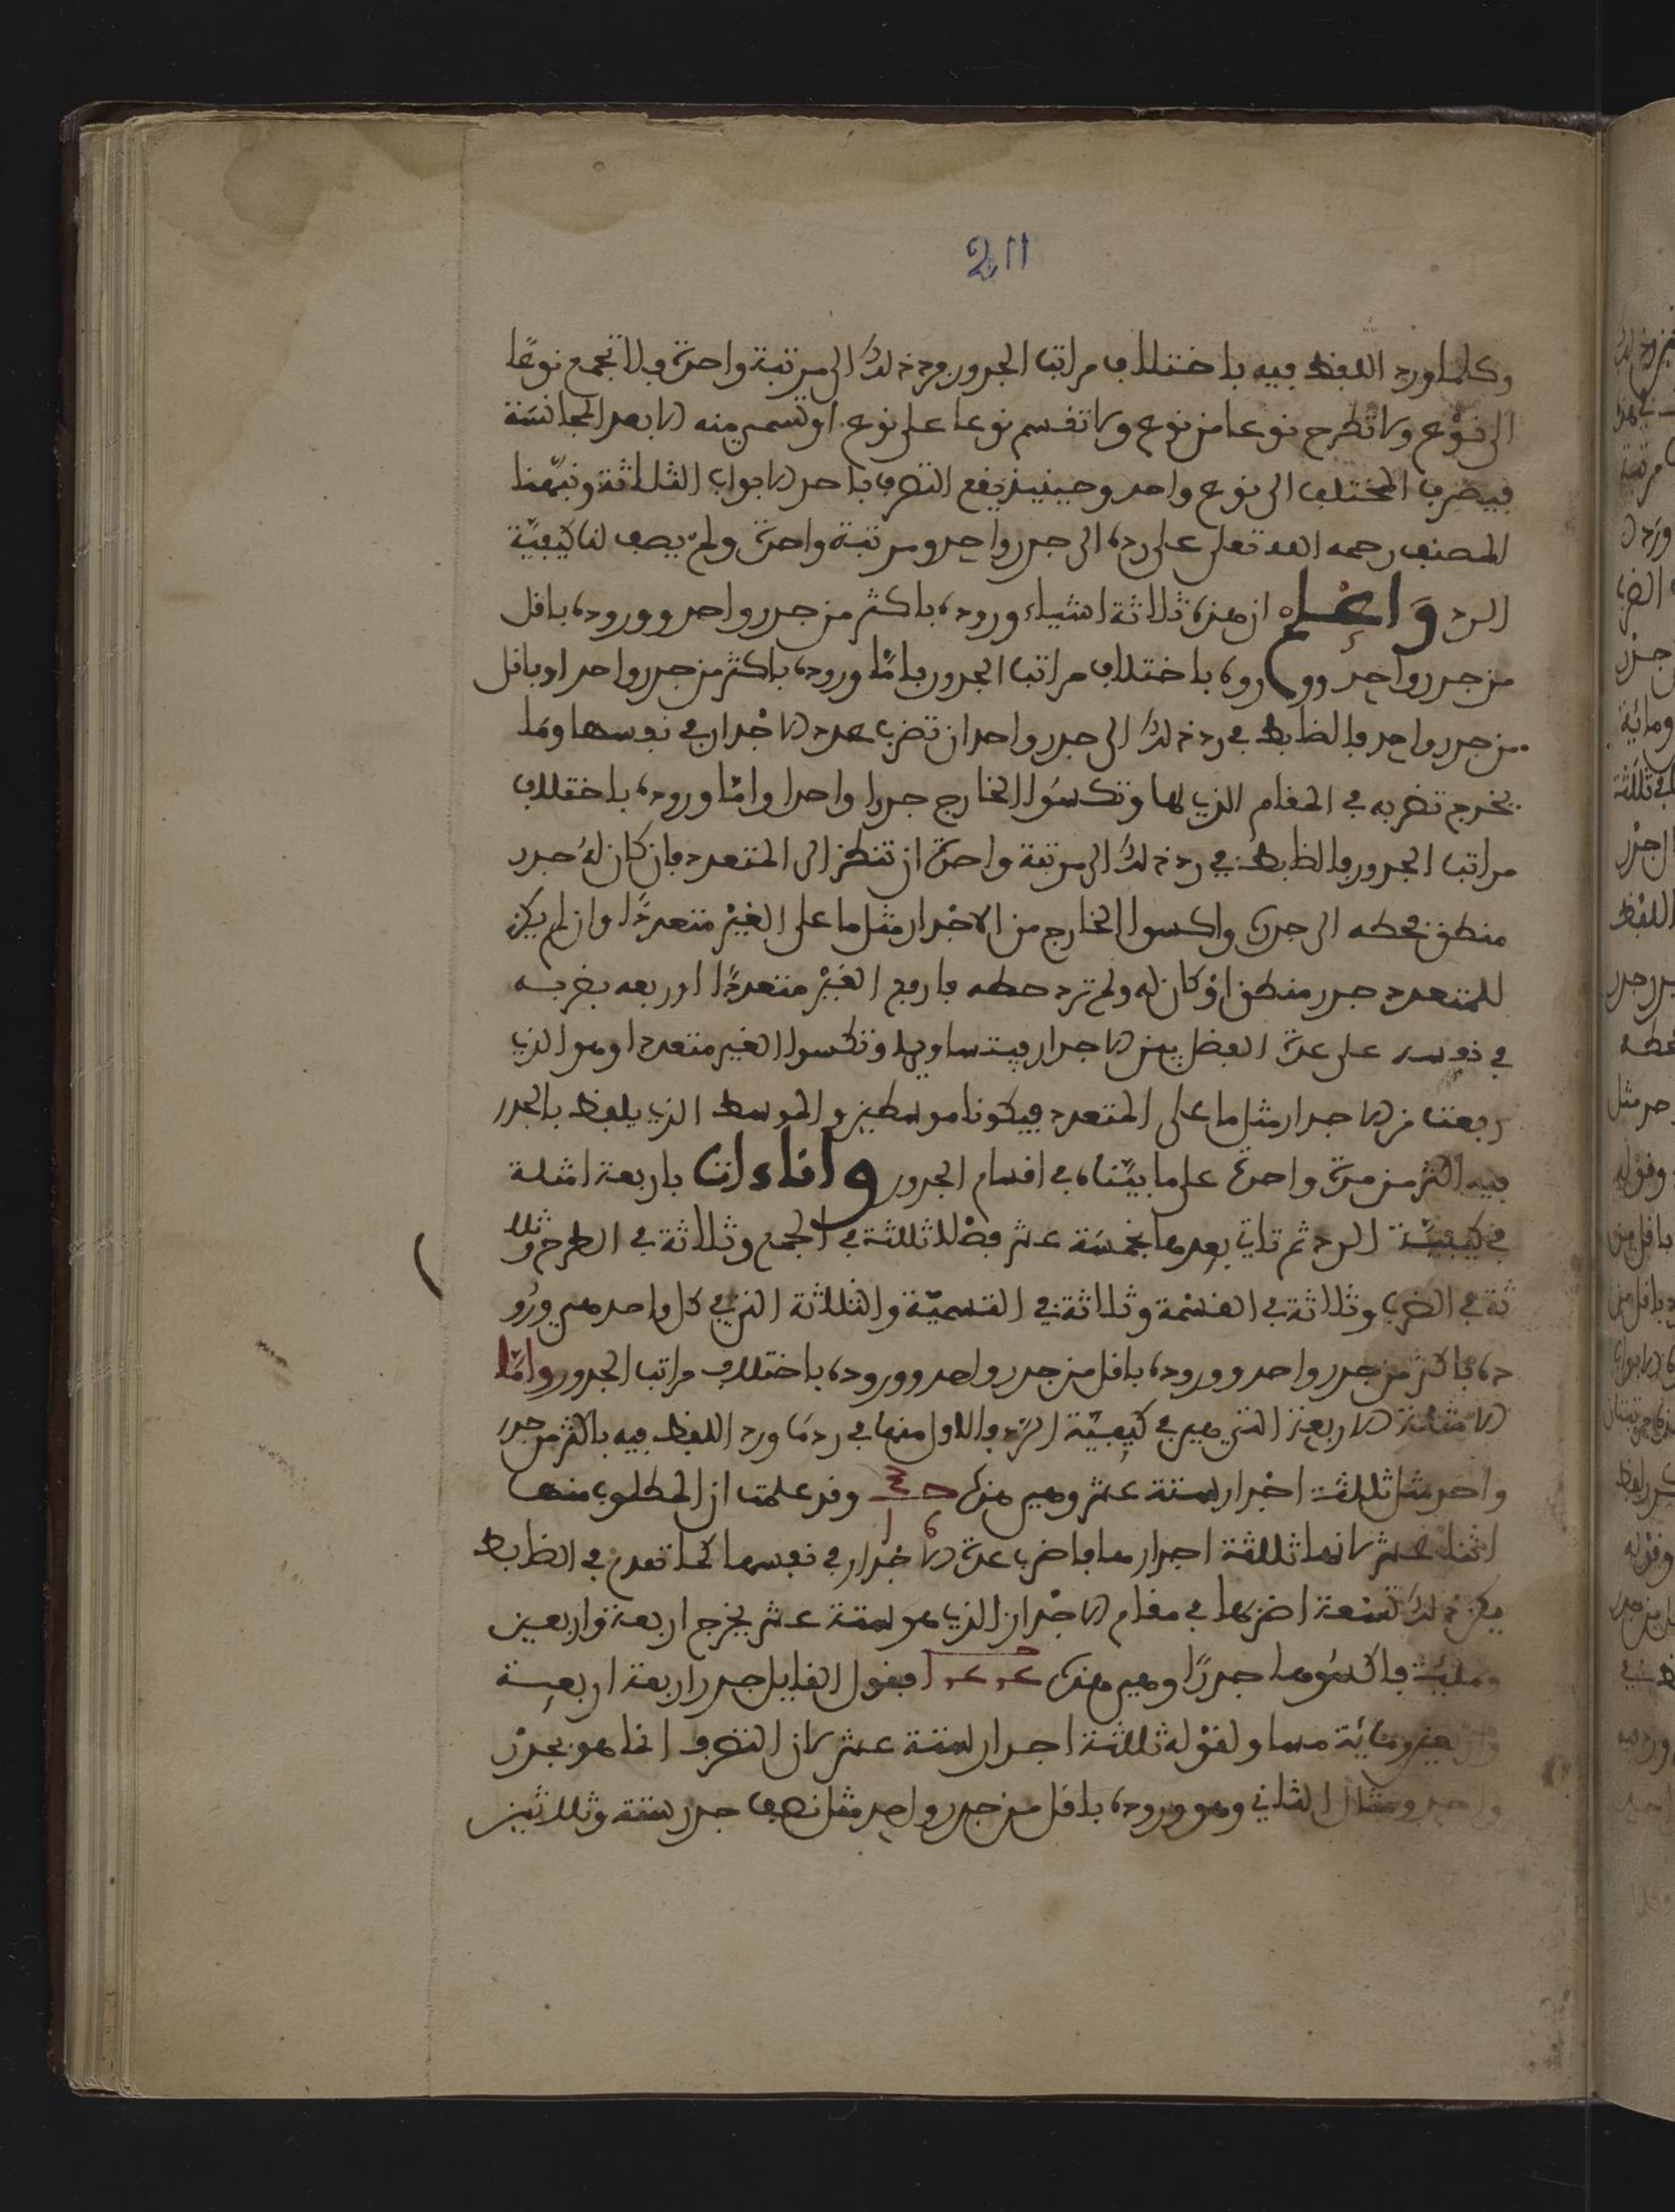 211
وكلما ورد اللفظ فيه باختلاف مراتب الجدور فرد ذلك الى مرتبة واحدة فلا تجمع نوعًا
الى نوع ولا تطرح نوعا من نوع ولا تقسم نوعا على نوع او تسمى منه الا بعد المجانسة
فيصرف المختلف الى نوع واحد وحينيذ يقع التصرف باحد الابواب الثلاثة ونبّهنا
المصنف رحمه الله تعلى على رده الى جدر واحد ومرتبة واحدة ولم يصف لنا كيفيّة
الرد واعلم ان هذه ثلاثة اشياء وروده باكثر من جدر واحد ووروده باقل
من جدر واحد ووروده باختلاف مراتب الجدور فامّا وروده باكثر من جدر واحد او باقل
من جدر واحد فالظابط في رد ذلك الى جدر واحد ان تضرب عدد الاجدار في نفسها وما
يخرج تضربه في المقام الذي لها وتكسوا الخارج جدرا واحدا وامّا وروده باختلاف
مراتب الجدور فالظابط في رد ذلك الى مرتبة واحدة ان تنظر الى المتعدد فان كان له جدر
منطق فحطه الى جدره واكسوا الخارج من الاجدار مثل ما على الغير متعددًا وان لم يكن
للمتعدد جدر منطق او كان له ولم ترد حطه فارفع الغير متعددًا اوربعه بضربه
في نفسه على عدة الفضل بين الاجدار فيتساويها وتكسوا الغير متعددا وهو الذي
ربعت من الاجدار مثل ما على المتعدد فيكونا موسطين والموسط الذي يلفظ بالجدر
فيه اكثر من مرة واحدة على ما بيّناه في اقسام الجدور وانا ءات باربعة امثلة
في كيفيّة الرد ثم تاتي بعدها بخمسة عشر فصلا ثلثة في الجمع وثلاثة في الطرح وثلا
ثة في الضرب وثلاثة في القسْمة وثلاثة في التسميّة والثلاثة التي في كل واحد هي ورو
ده باكثر من جدر واحد ووروده باقل من جدر واحد ووروده باختلاف مراتب الجدور وامّا
الامثلة الاربعة التي هي في كيفيّة الرد فالاول منها في رد ما ورد اللفظ فيه باكثر من جدر
واحد مثل ثلثة اجدار ستة عشر وهي هذه وقد علمت ان المطلوب منها
اثنا عشر لانها ثلثة اجدارها فاضرب عدة الاجدار في نفسها كما تقدم في الظابط
يكن ذلك تسعة اضربها في مقام الاجدار الذي هو ستة عشر يخرج اربعة واربعين
ومائة فاكسوها جدرًا وهي هذه فيقول القايل جدر اربعة اربعة
واربعين ومائة مساو لقوله ثلثة اجدار ستة عشر لان التصرف انما هو بجدر
واحد ومثال الثاني وهو وروده باقل من جدر واحد مثل نصف جدر ستة وثلاثين